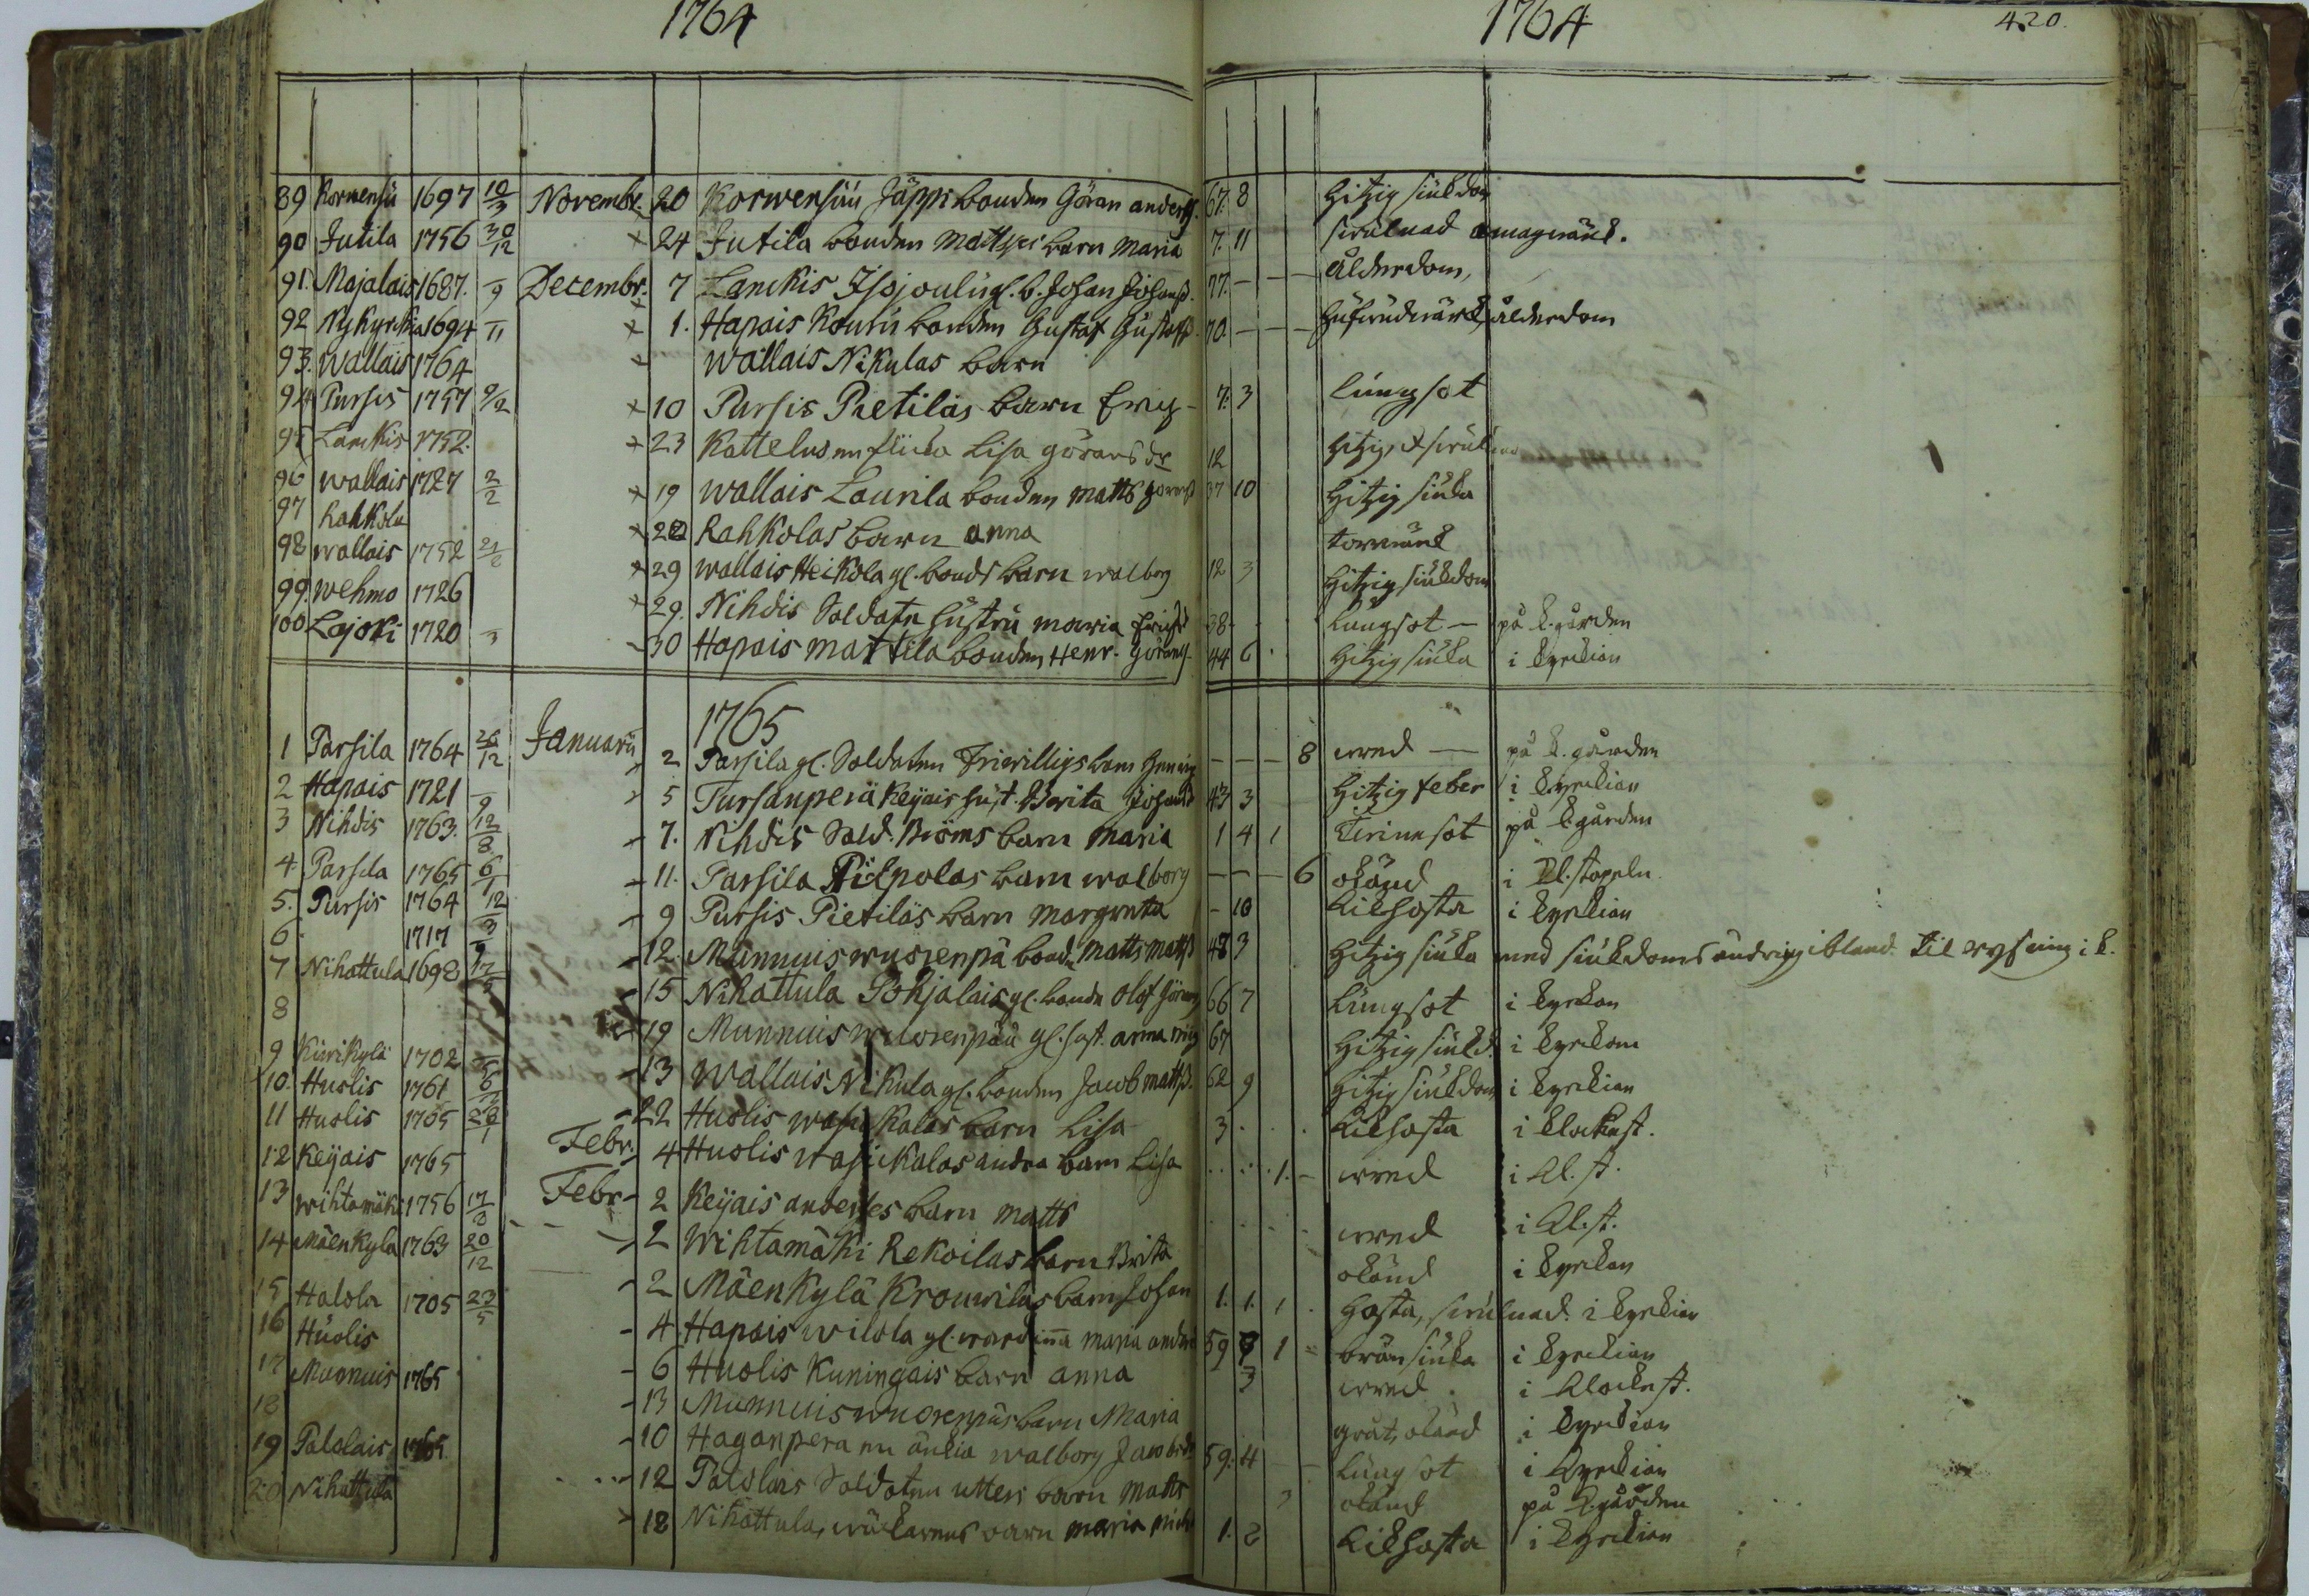 1764
1764 420.
89 Korvensu 1697 10/3 Novembr. 20 Korwensuu Jäppi bonden Göran anderss. 67. 8 Hitzig siukdom
90 Jutila 1756 30/12 24 Jutila bonden Mattses barn Maria 7. 11 swulnad magwärk.
91. Majalais 1687. 9 Decembr. 7 Lanckis Isojouli gl. b. Johan Johanss. 77. ålderdom,
92 Nykyrckia 1694 11 1. Hapais Kouru bonden Gustaf Gustafss. 70. hufwudwärk, ålderdom
93. Wallais 1764 Wallais Nikulas barn
94 Pursis 1757 9/2 10 Pursis Pietilas barn Eric 7. 3 lungsot
95 Lanckis 1752. 23 Kattelus nu flicka Lisa Görans dr 12 hitzig
96 Wallais 1727 2/2 19 Wallais Laurila bonden Matts 37 10 Hitzig siuka
97 Rahkola 22 Rahkolas barn Anna torrwärk
98 Wallais 1752 21/2 29 Wallais Heikola gl. bonds barn Walborg 12 3 Hitzig siukdom
99. Wehmo 1726 29. Nihdis Soldatn hustru Maria 38 lungsot på k. gården
100 Lajoki 1720 3 30 Hapais Mattila bonden Henr. Görans 44 6 Hitzig siuka i kyrckian
1765
1 Parsila 1764 26/12 Januarii 2 Parsila gl. Soldaten Friwilligs barn 8 wred på k. gården
2 Hapais 1721 9 5 Tursanperä Keijais hust. Brita Johans 43 3 Hitzig feber i kyrckian
3 Nihdis 1763. 12/8 7. Nihdis Sold. Bröms barn Maria 1 4 1 Twinsot på k. gården
4. Parsila 1765 6/1 11. Parsila Pilpolas barn Walborg 6 okänd i kl. stapeln.
5. Pursis 1764 12/3 9 Pursis Pietiläs barn Margreta 10 kikhosta i kyrckian
6 1717 12. Munnuis Wuorenpä bond. Matts Matss 48 3 Hitzig siuka med siukdoms ändring ibland.
7 Nihattula 1698 15 Nihattula Pohjalais gl. bonde Olof Görans 66 7 lungsot i kyrkan
8 19 Munnuis Wuorenpää gl. hust. Anna 67 Hitzig siukd. i kyrckan
9 Kiwikylä 1702 5 13 Wallais Nikula gl. bonden Jacob Matss. 62 9 Hitzig siukdom i kyrckian
10. Huolis 1761 22 Huolis barn Lisa 3 kikhosta i klockast.
11 Huolis 1765 28/1 Febr. 4 Huolis andra barn Lisa 1. wred i kl. st.
12 Keijais 1765 Febr. 2 Keijais anderses barn Matts wred i kl. st.
13 Wihtamäki 1756 17/8 2 Wihtamäki Rekoilas barn Brita okänd i kyrkan
14 Mäenkyla 1763 20/12 2 Mäenkylä Krouwilas barn Johan 1. 1. 1 hosta, swulnad. i kyrckian
15 Halola 1705 23/5 4 Hapais Wilola gl. wärdinna Maria 59 8 1 brånsiuka i kyrckian
16 Huolis 6 Huolis Kuningais barn Anna 3 wred i klockst.
17 Munnuis 1765 13 Munnuis Wuorenpäs barn Maria gråt, okänd i kyrckian
18 10 Haganpera nu änkia Walborg Jacobsdr 59. 4 lungsot i kyrckian
19 Palolais 1765 12 Palolais Soldaten Utters barn Matts okänd på k. gården
20 Nihattula 18 Nihattula, barn Maria 1. 2 kikhosta i kyrckian